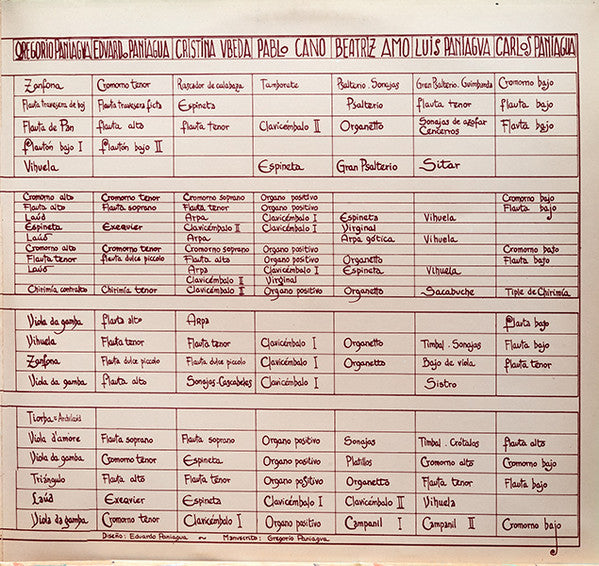 GREGORIO PANIAGVA EDVARDO PANIAGVA CRISTINA VBEDA PABLO CANO BEATRIZ AMO LUIS PANIAGVA CARLOS PANIAGVA
Zanfona Cromorno tenor Rascador de calabaza Tamborete Psalterio. Sonajas Gran Psalterio. Guimbarda Cromorno bajo
Flauta travesera de boj Flauta travesera ficta Espineta Psalterio flauta tenor flauta bajo
Flauta de Pan flauta alto flauta tenor Clavicémbalo II Organetto Sonajas de azofar Cencerros Flauta bajo
Flautón bajo I Flautón bajo II
Vihuela Espineta Gran Psalterio Sitar
Cromorno alto Cromorno tenor Cromorno soprano Organo positivo Cromorno bajo
Flauta alto Flauta soprano Flauta tenor Organo positivo Flauta bajo
Laúd Arpa Clavicémbalo I Espineta Vihuela
Espineta Exequier Clavicémbalo II Clavicémbalo I Virginal
Laúd Arpa Arpa gótica Vihuela
Cromorno alto Cromorno tenor Cromorno soprano Organo positivo Cromorno bajo
Flauta tenor flauta dulce piccolo Flauta alto Organo positivo Organetto Flauta bajo
Laúd Arpa Clavicémbalo I Espineta Vihuela
Clavicémbalo II Virginal
Chirimía contralto Chirimía tenor Clavicémbalo II Organo positivo Organetto Sacabuche Tiple de Chirimía
Viola da gamba flauta alto Arpa flauta bajo
Vihuela Flauta tenor Flauta tenor Clavicémbalo I Organetto Timbal . Sonajas Flauta bajo
Zanfona Flauta dulce piccolo Flauta dulce piccolo Clavicémbalo I Organetto Bajo de viola flauta tenor
Viola da gamba flauta alto Sonajas-Cascabeles Clavicémbalo I Sistro
Tiorba = Archilaúd
Viola d'amore Flauta soprano Flauta soprano Organo positivo Sonajas Timbal . Crótalos flauta alto
Viola da gamba Cromorno tenor Espineta Organo positivo Platillos Cromorno alto Cromorno bajo
Triángulo Flauta alto Flauta tenor Organo positivo Organetto Flauta tenor Flauta bajo
Laúd Exequier Espineta Clavicémbalo I Clavicémbalo II Vihuela
Viola da gamba Cromorno tenor Clavicémbalo I Organo positivo Campanil I Campanil II Cromorno bajo
Diseño: Eduardo Paniagua ~ Manuscrito: Gregorio Paniagva